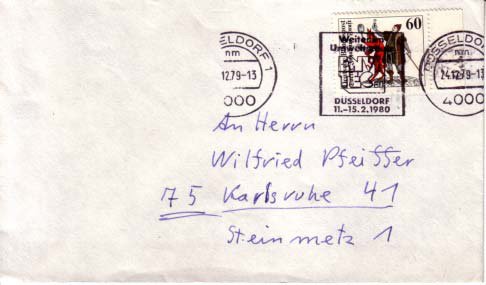 DÜSSELDORF 1
mm
12.79-13
4000
60
Weiterleben
Umwelt
DÜSSELDORF
11.-15.2.1980
DÜSSELDORF
mm
24.12.79-13
4000
An Herrn
Wilfried Pfeiffer
75 Karlsruhe 41
Steinmetz 1